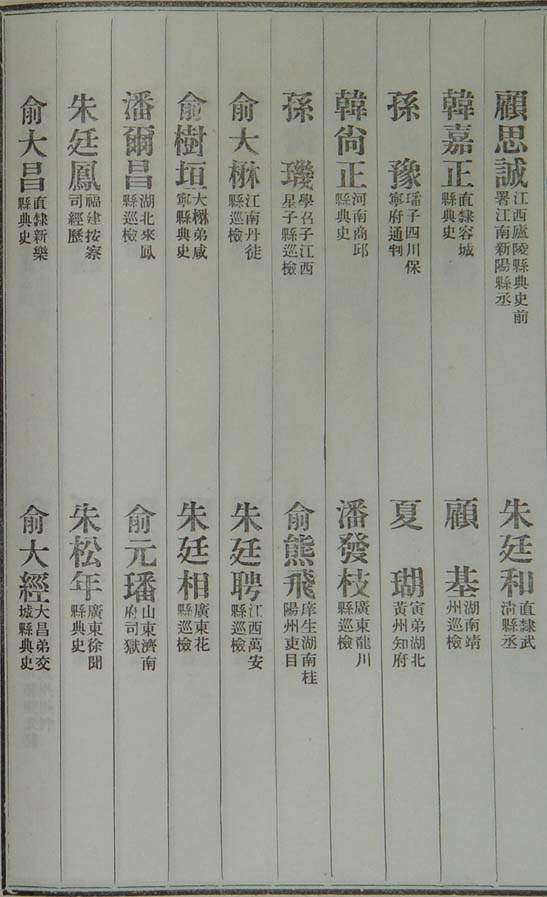 顧思誠 江西廬陵縣典史前署江南新陽縣丞
朱廷和 直隸武清縣丞
韓嘉正 直隸容城縣典史
顧基 湖南靖州巡檢
孫豫 璠子四川保寧府通判
夏瑚 寅弟湖北黃州知府
韓尙正 河南商邱縣典史
潘發枝 廣東龍川縣巡檢
孫璣 學召子江西星子縣巡檢
俞熊飛 庠生湖南桂陽州吏目
俞大楙 江南丹徒縣巡檢
朱廷聘 江西萬安縣巡檢
俞樹垣 大楙弟咸寧縣典史
朱廷相 廣東花縣巡檢
潘爾昌 湖北來鳳縣巡檢
俞元璠 山東濟南府司獄
朱廷鳳 福建按察司經歷
朱松年 廣東徐聞縣典史
俞大昌 直隸新樂縣典史
俞大經 大昌弟交城縣典史